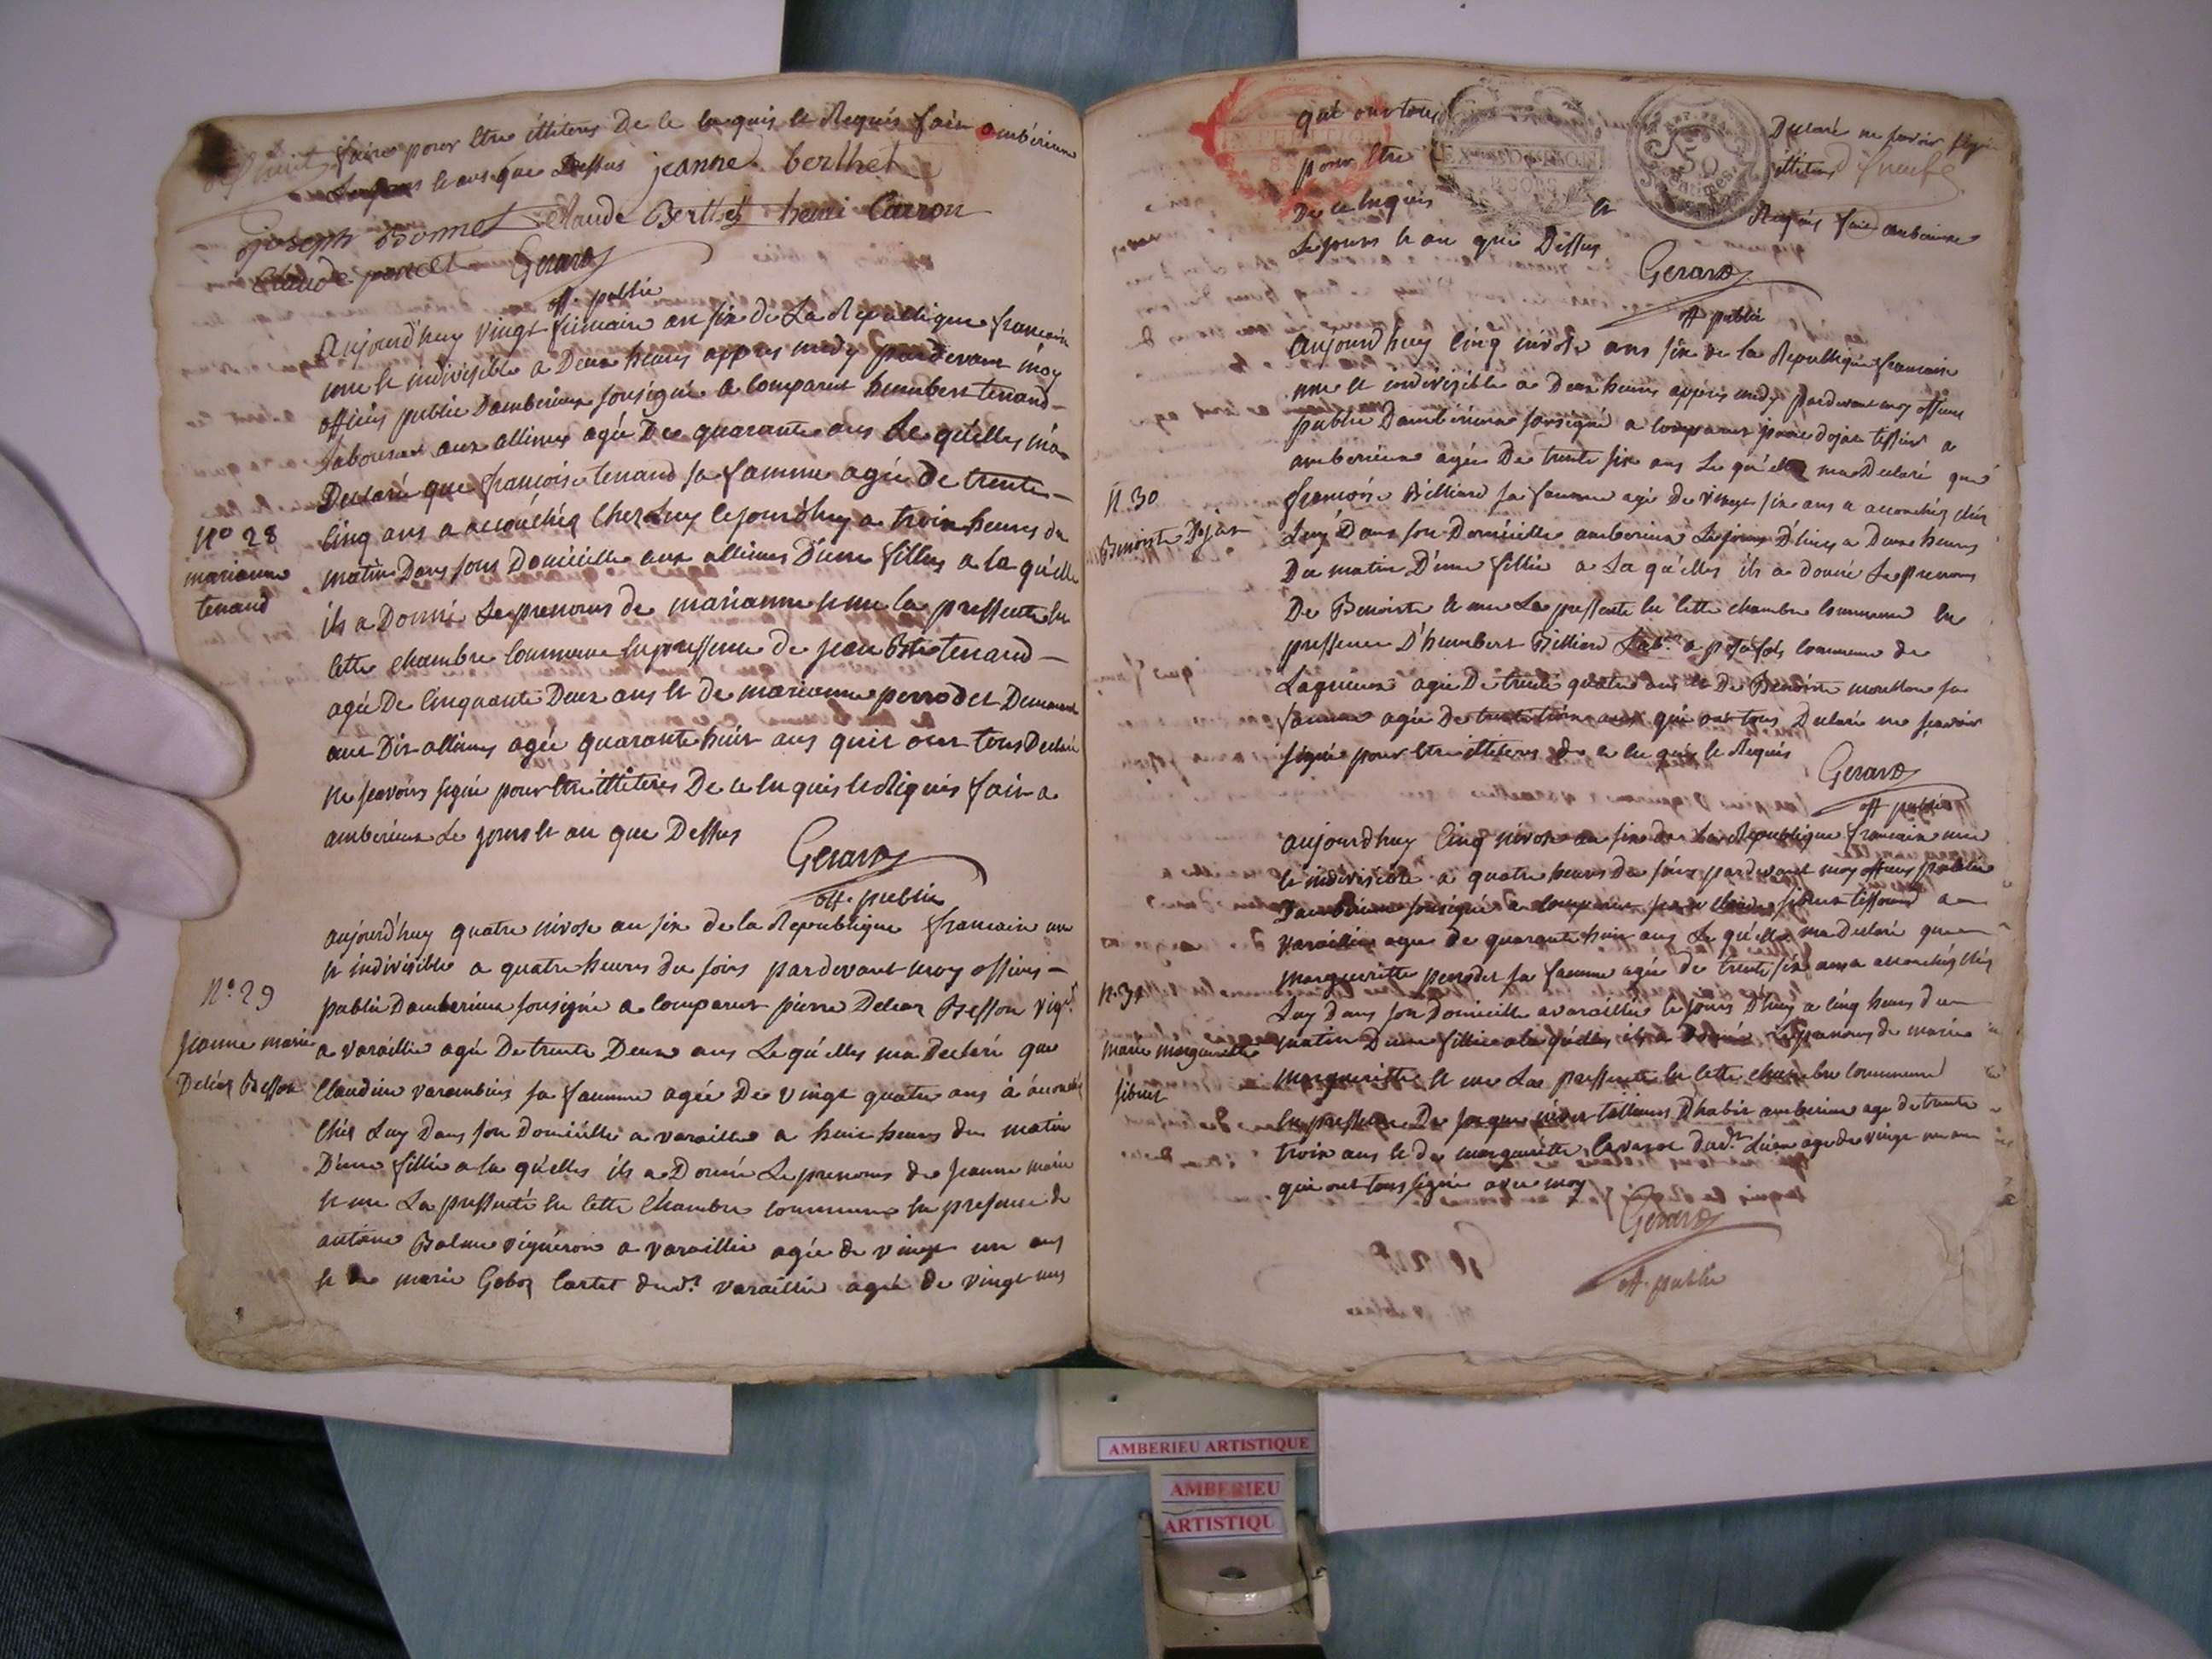 faire pour Etre illiteres De ce enquis et Requis fait amberieux
Le jour et ans que Dessus jeanne berthet
joseph Bonnet Claude Berthet henri Carron
Claude Gerard
off. public
Aujourd'huy vingt frimaire an six de La Republique francaise
une et indivisible a Deux heures appres midy pardevant moy
officier public Damberieux sousigné a Comparut humbert tenand
Laboureur aux allimes agée De quarante ans Le qu'elles m'a
Declaré que francoise tenand sa famme agée de trente
Cinq ans a accouchéz Chez Luy Cejourd'huy a trois heures du
matin Dans sont Domicille aux allimes D'une filles a la qu'elle
ils a Donné Le prenoms de marianne et me la pressente en
cette chambre Commune En pressence de jean Bte tenand
agée De Cinquante Deux ans et de marianne perrodet Demeurant
aux Dit allimes agée quarante huit ans quit ont tous Declaré
ne scavoirs signé pour Etre illiteres De ce enquis et Requis fait a
amberieux Le jours et an que Dessus
Gerard
off. public
N° 28
marianne
tenand
aujourd'huy quatre nivose an six de la Republique francaise une
et indivisible a quatre heures du soirs pardevant moy officier
public Damberieux sousigné a Comparut pierre Besson vign.
a varaillie agée De trente Deux ans Le qu'elles ma Declaré que
Claudine varambier sa famme agée De vingt quatre ans a accouchéz
Chéz Luy Dans son Domicille a varaille a huit heures du matin
D'une fillie a la qu'elles ils a Donné Le prenoms de Jeanne marie
et me La pressente En Cette Chambre Commune En presence de
antoine Balme vigneron a varaillie agée de vingt un ans
et De marie Goboz Cartet dud.t varaillie agée de vingt ans
N° 29
Jeanne marie
Besson
qui ont tous Declaré ne savoir signé
pour Etre illiteres
De ce enquis et Requis fait amberieux
Le jours et an que Dessus
Gerard
off public
50
aujourd'huy Cinq nivose ans six de la Republique francaise
une et indivizible a Deux heures appres midy pardevant moy officier
public Damberieux sousigné a Comparut dojat tessier a
amberieux agée De trente six ans Le qu'elles ma Declaré que
francoise Billiard sa famme agé De vingt six ans a accouchéz chéz
Luy Dans son Domicille amberieux Le jours D'huy a Deux heures
Du matin D'une fillie a La qu'elles ils a donné Le prenoms
De Benoiste et me La pressente En Cette chambre Commune En
pressence D'humbert Billiard Lab.r a commune de
Lagnieux agée De trente quatre ans et De Benoiste sa
famme agée De ans qui ont tous Declaré ne scavoir
signé pour Etre illiteres de ce enquis et Requis
Gerard
off public
N. 30
Benoiste Dojat
aujourd'huy Cinq nivose an six de La Republique francaise une
et indivisible a quatre heures du soirs pardevant moy officier public
Damberieux sousigné a Comparut sibuet a
varaillie agée de quarante huit ans Le qu'elle ma Declaré que
margueritte perrodet sa famme agée de trente six ans a accouchéz chéz
Luy dans son Domicille a varaillie le jours D'huy a Cinq heures du
matin D'une fillie a la qu'elles ils a Donné Le prenoms de marie
margueritte et me La pressente En Cette chambre Commune
En pressence De jaque amberieux agé de trente
trois ans et de margueritte agée de vingt un ans
qui ont tous signé avec moy
Gerard
off. public
N. 31
marie margueritte
sibuet
AMBERIEU ARTISTIQUE
AMBERIEU
ARTISTIQU